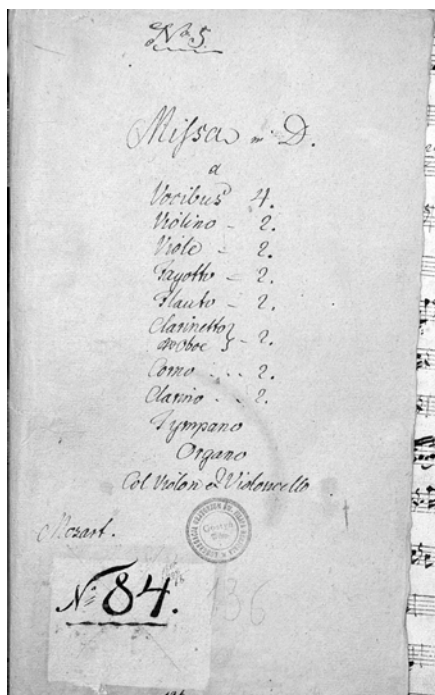 No 5
Missa in D.
a
Vocibus 4.
Violino – 2.
Viole – 2.
Fagotto – 2.
Flauto – 2.
Clarinetto
Oboe } – 2.
Corno . . . 2.
Clarino . . 2.
Tympano
Organo
Col Violon et Violoncello
Mozart.
No 84.
136